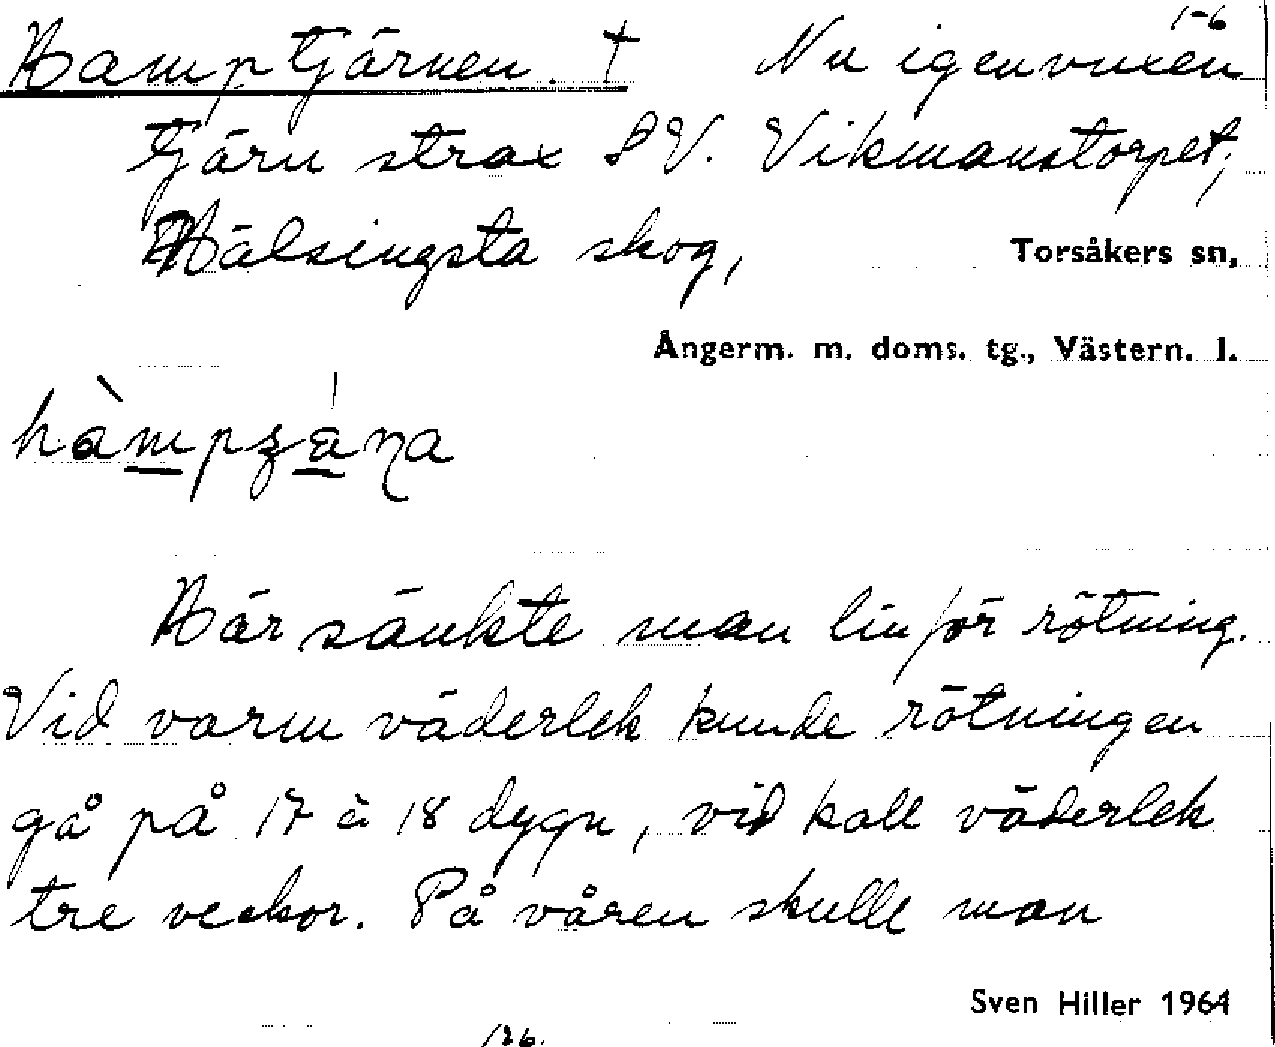 1-6
Hamptjärnen. † Nu igenvuxen
tjärn strax SV. Vikmanstorpet,
Hälsingsta skog, Torsåkers sn,
Ångerm. m. doms. tg., Västern. l.
Här sänkte man lin för rötning.
Vid varm väderlek kunde rötningen
gå på 17 à 18 dygn, vid kall väderlek
tre veckor. På våren skulle man
Sven Hiller 1964
126.